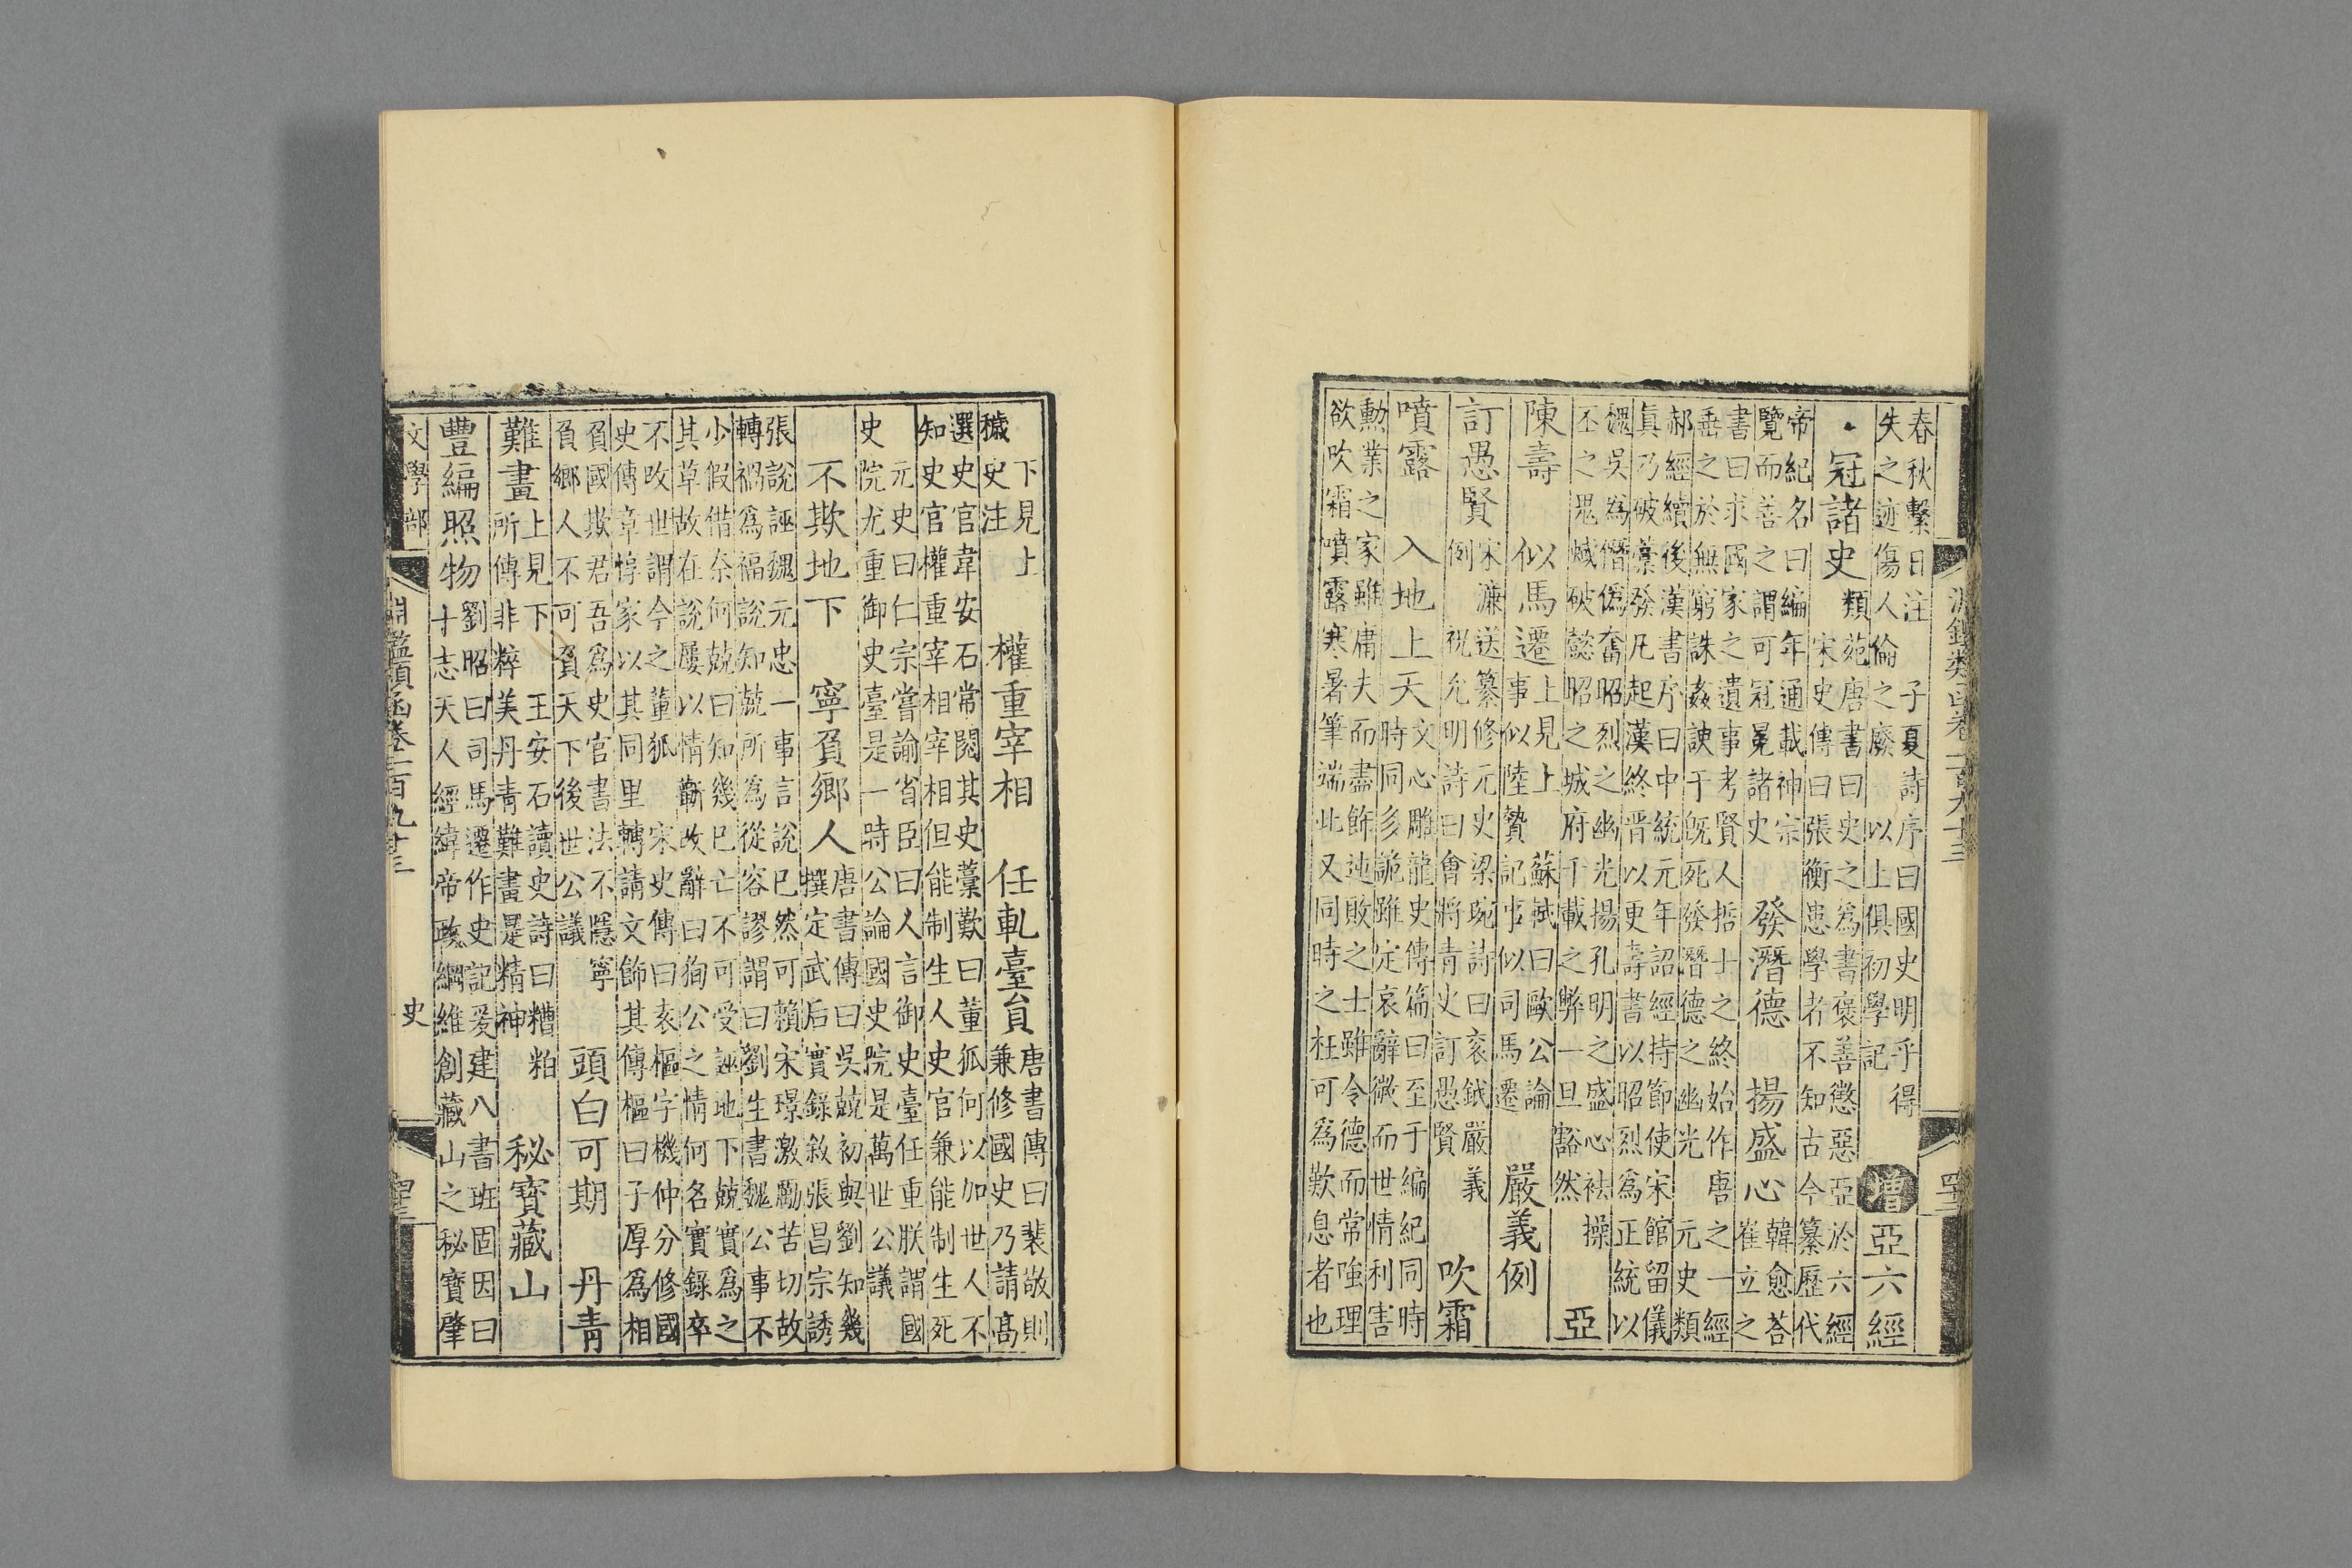 淵鑑類函卷一百九十三
春秋繫日注 子夏詩序曰國史明乎得
失之迹傷人倫之廢 以上俱初學記
增 亞六經
類苑唐書曰史之為書褒善懲惡亞於六經
冠諸史
宋史傳曰張衡患學者不知古今纂歷代
帝紀名曰編年通載神宗
覽而善之謂可冠冕諸史
發潛德 揚盛心
韓愈荅
崔立之
書曰求國家之遺事考賢人哲士之終始作唐之一經
垂之於無窮誅姦諛于旣死發潛德之幽光 元史類
郝經續後漢書序曰中統元年詔經持節使宋館留儀
真乃破藁發凡起漢終晉以更壽書以昭烈為正統以
魏吳為僭偽奮昭烈之幽光揚孔明之盛心袪操
丕之鬼蜮破懿昭之城府千載之弊一旦豁然
亞
陳壽 似馬遷
上見上 蘇軾曰歐公論
事似陸贄記事似司馬遷
嚴義例
訂愚賢
宋濂送纂修元史梁琬詩曰袞鉞嚴義
例 祝允明詩曰會將青史訂愚賢
吹霜
噴露 入地上天
文心雕龍史傳篇曰至于編紀同時
時同多詭雖定哀辭微而世情利害
勲業之家雖庸夫而盡飾迍敗之士雖令德而常嗤理
欲吹霜噴露寒暑筆端此又同時之枉可為歎息者也
穢史注 下見上
權重宰相 任軋臺貟
唐書傳曰裴敬則
兼修國史乃請高
選史官韋安石常閱其史藁歎曰董狐何以加世人不
知史官權重宰相宰相但能制生人史官兼能制生死
史
元史曰仁宗嘗諭省臣曰人言御史臺任重朕謂國
院尤重御史臺是一時公論國史院是萬世公議
不欺地下 寧負鄉人
唐書傳曰吳兢初與劉知幾
撰定武后實錄敘張昌宗誘
張說誣魏元忠一事言說已然可賴宋璟激勵苦切故
轉禍為福說知兢所為從容謬謂曰劉生書魏公事不
少假借奈何兢曰知幾已亡不可受誣地下兢實為之
其草故在說屢以情蘄改辭曰狥公之情何名實錄卒
不改世謂今之董狐 宋史傳曰袁樞字機仲分修國
史傳章惇家以其同里轉請文飾其傳樞曰子厚為相
負國欺君吾為史官書法不隱寧
負鄉人不可負天下後世公議
頭白可期 丹青
難畫
上見下 王安石讀史詩曰糟粕
所傳非粹美丹青難畫是精神
秘寶藏山
豐編照物
劉昭曰司馬遷作史記爰建八書班固因曰
十志天人經緯帝政綱維創藏山之秘寶肇
文學部 史
淵鑑類函卷一百九十三